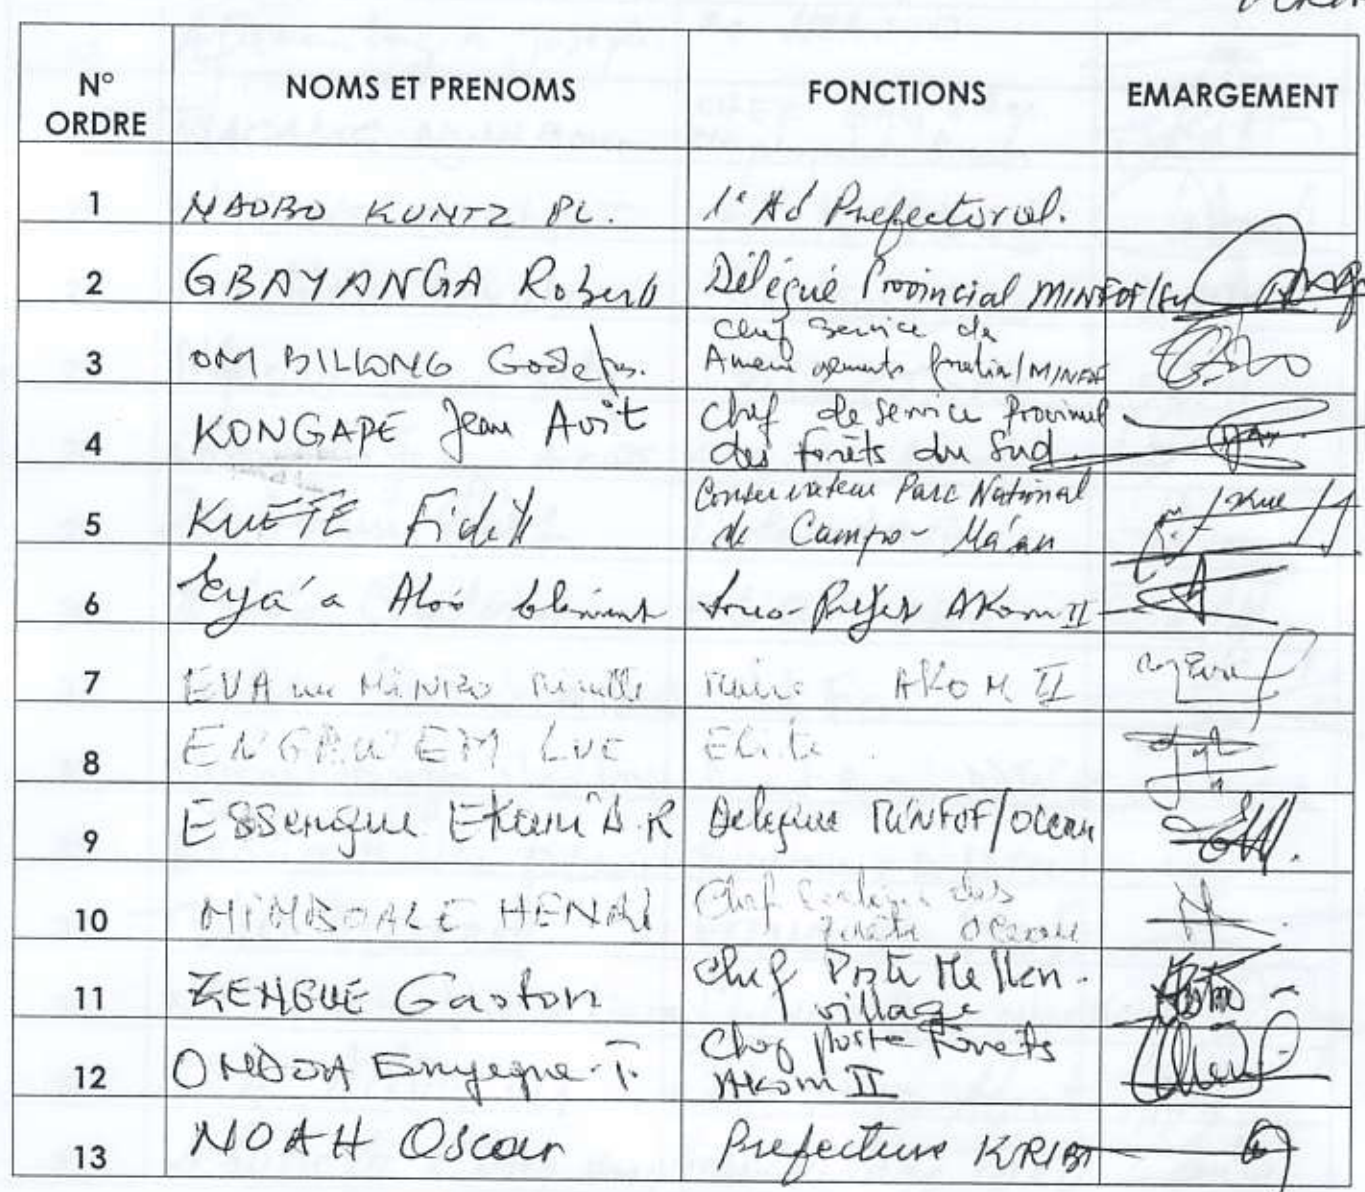 N° ORDRE NOMS ET PRENOMS FONCTIONS EMARGEMENT
1 NAOBO KUNTZ PL. 1° Ad Prefectoral.
2 GBAYANGA Robert Délégué Provincial MINFOF/Su
3 OMBILLONG Godefr. Chef Service de
Amenagements forestier/MINFOF
4 KONGAPE Jean Avit Chef de Service Provincial
des Forêts du Sud
5 KUETE Fidèle Conservateur Parc National
de Campo-Ma'an
6 Clément Sous-Préfet AKom II
7 EVA née MINKO Maire AKOM II
8 LUC Elite
9 Essengue Ekani D.R Delegue MINFOF/Ocean
10 MIMBOALE HENRI Chef des
forêts Ocean
11 ZENGUE Gaston Chef Poste
village
12 ONDOA T. Chef poste Forêts
AKom II
13 NOAH Oscar Prefecture KRIBI